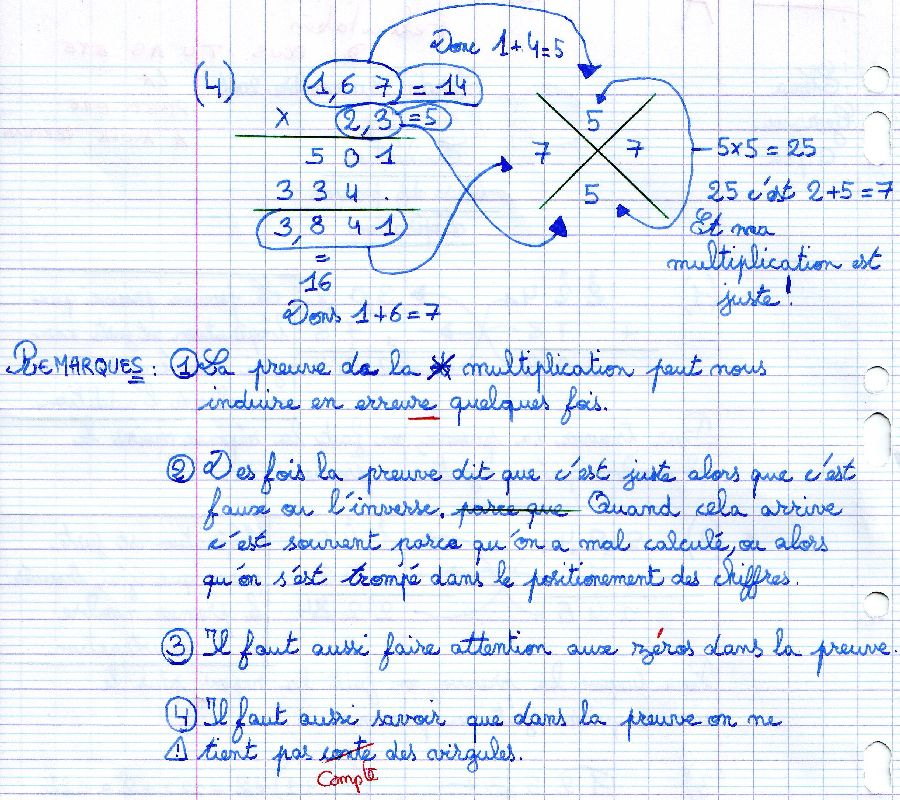 Donc 1+4=5
(4) 1,67 = 14
x 2,3 = 5
5 0 1
3 3 4 .
3,8 4 1
=
16
Dons 1+6=7
5
7 7
5
5x5 = 25
25 c'est 2+5=7
Et ma
multiplication est
juste !
REMARQUES : ① La preuve de la multiplication peut nous
induire en erreure quelques fois.
② Des fois la preuve dit que c'est juste alors que c'est
faux ou l'inverse. parce que Quand cela arrive
c'est souvent parce qu'on a mal calculé, ou alors
qu'on s'est trompé dans le positionement des chiffres.
③ Il faut aussi faire attention aux zéros dans la preuve.
④ Il faut aussi savoir que dans la preuve on ne
⚠ tient pas conte des virgules.
Compte